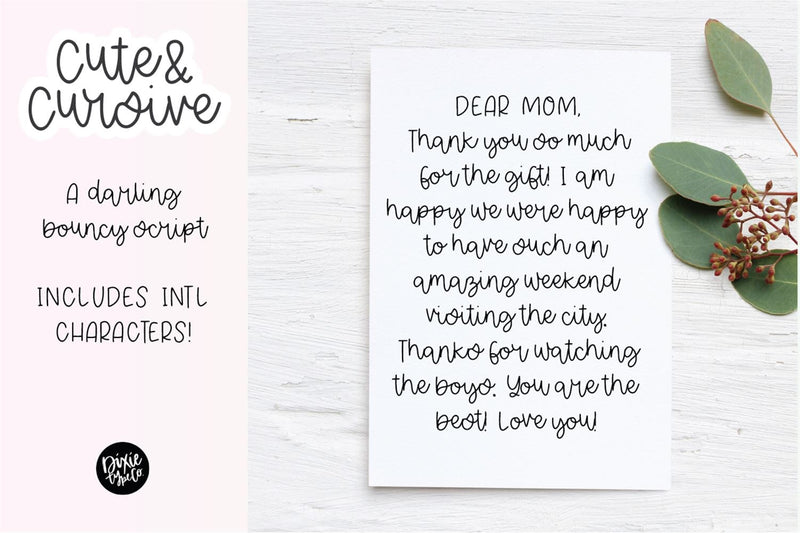 Cute &
Cursive
A darling
bouncy script
INCLUDES INTL
CHARACTERS!
Dixie
Type Co.
DEAR MOM,
Thank you so much
for the gift! I am
happy we were happy
to have such an
amazing weekend
visiting the city.
Thanks for watching
the boys. You are the
best! Love you!